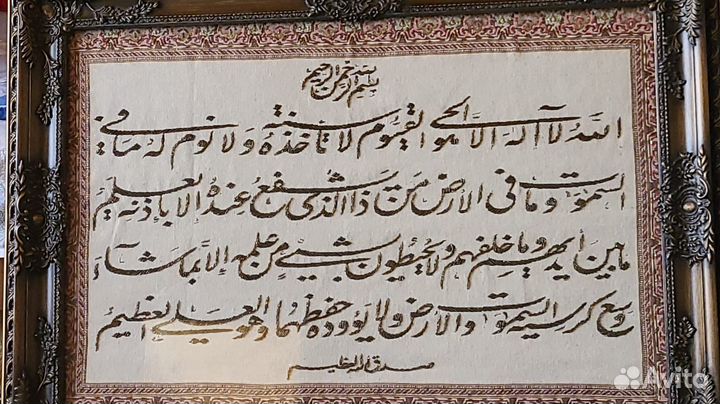 بسم الله الرحمن الرحيم
الله لا اله الا هو الحي القيوم لا تاخذه سنة ولا نوم له ما في
السموات وما في الارض من ذا الذي يشفع عنده الا باذنه يعلم
ما بين ايديهم وما خلفهم ولا يحيطون بشيء من علمه الا بما شاء
وسع كرسيه السموات والارض ولا يؤوده حفظهما وهو العلي العظيم
صدق الله العظيم
Avito